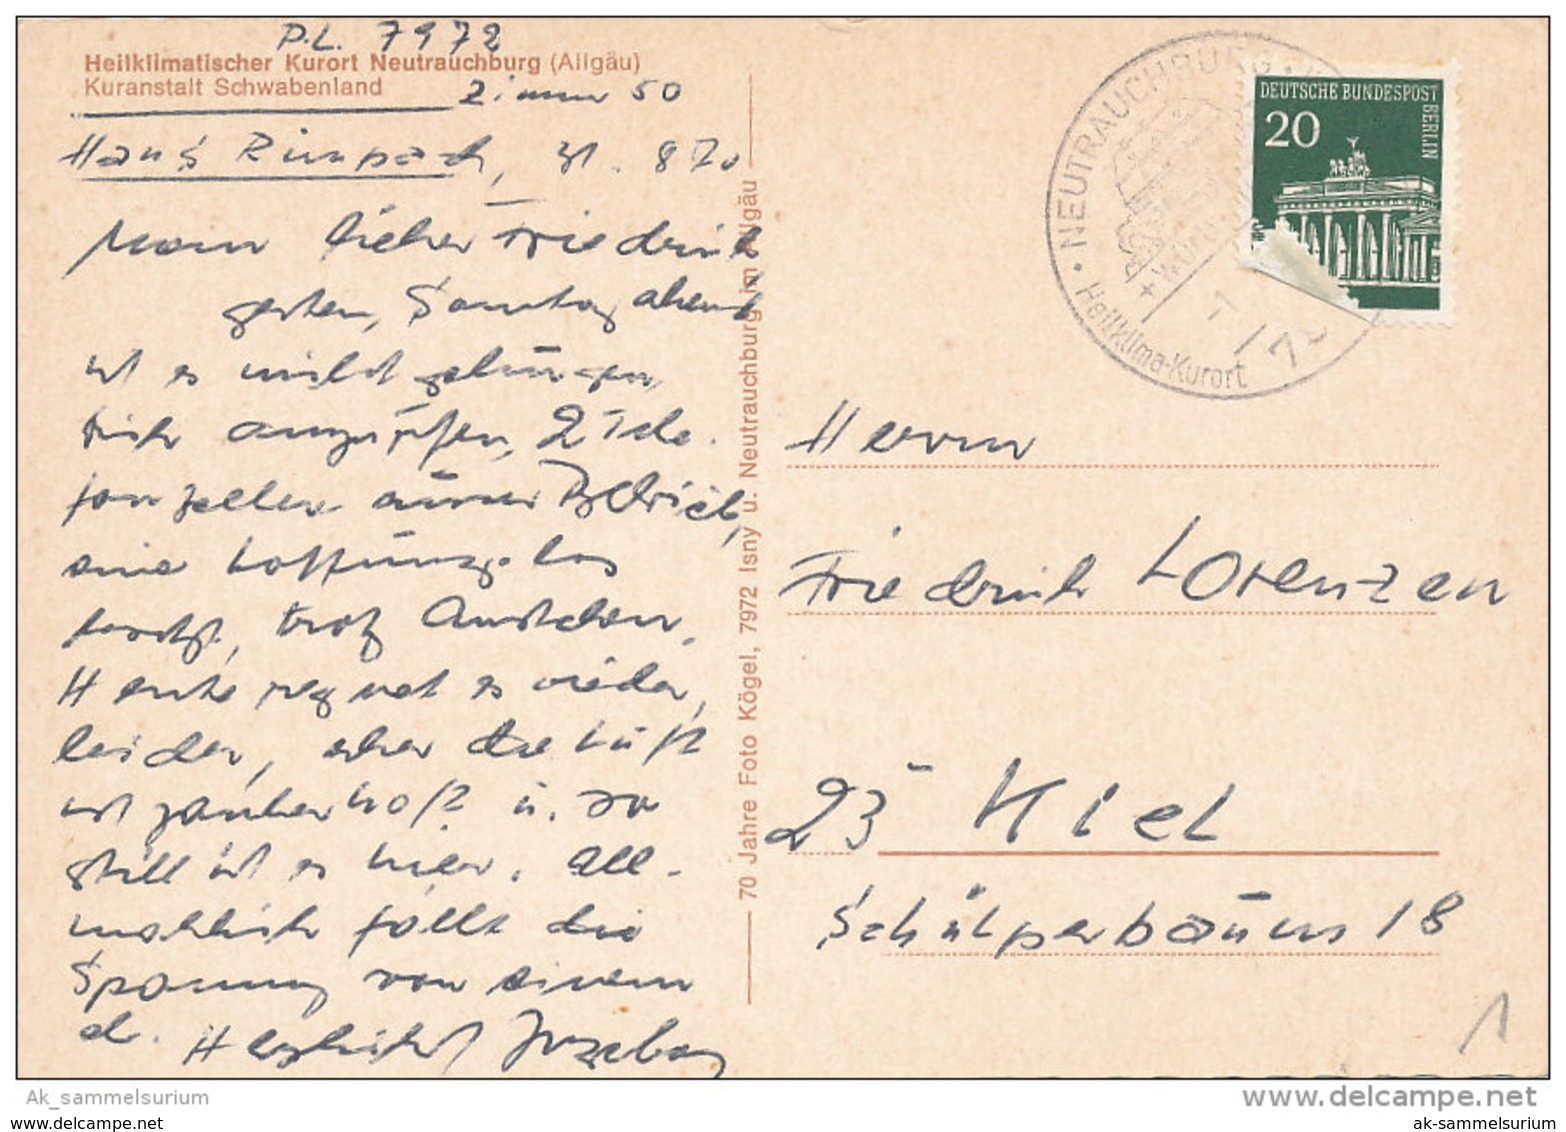 P.L. 7972
Heilklimatischer Kurort Neutrauchburg (Allgäu)
Kuranstalt Schwabenland
Zimmer 50
Haus Rimpach, 31. 8 70
Mein lieber Friedrich
gestern, Sonntag abend
ist es nicht gelungen,
Dich anzurufen, 2 Tele-
fonzellen ausser Betrieb,
eine hoffnungslos
besetzt, trotz Anstehen.
Heute regnet es wieder,
leider, aber die Luft
ist zauberhaft u. so
still ist es hier. All-
mählich fällt die
Spannung von einem
ab. Herzlichst
70 Jahre Foto Kögel, 7972 Isny u. Neutrauchburg im Allgäu
NEUTRAUCHBURG
Heilklima-Kurort
DEUTSCHE BUNDESPOST
BERLIN
20
Herrn
Friedrich Lorenzen
23 Kiel
Schülperbaum 18
1
Ak_sammelsurium
www.delcampe.net
www.delcampe.net
ak-sammelsurium